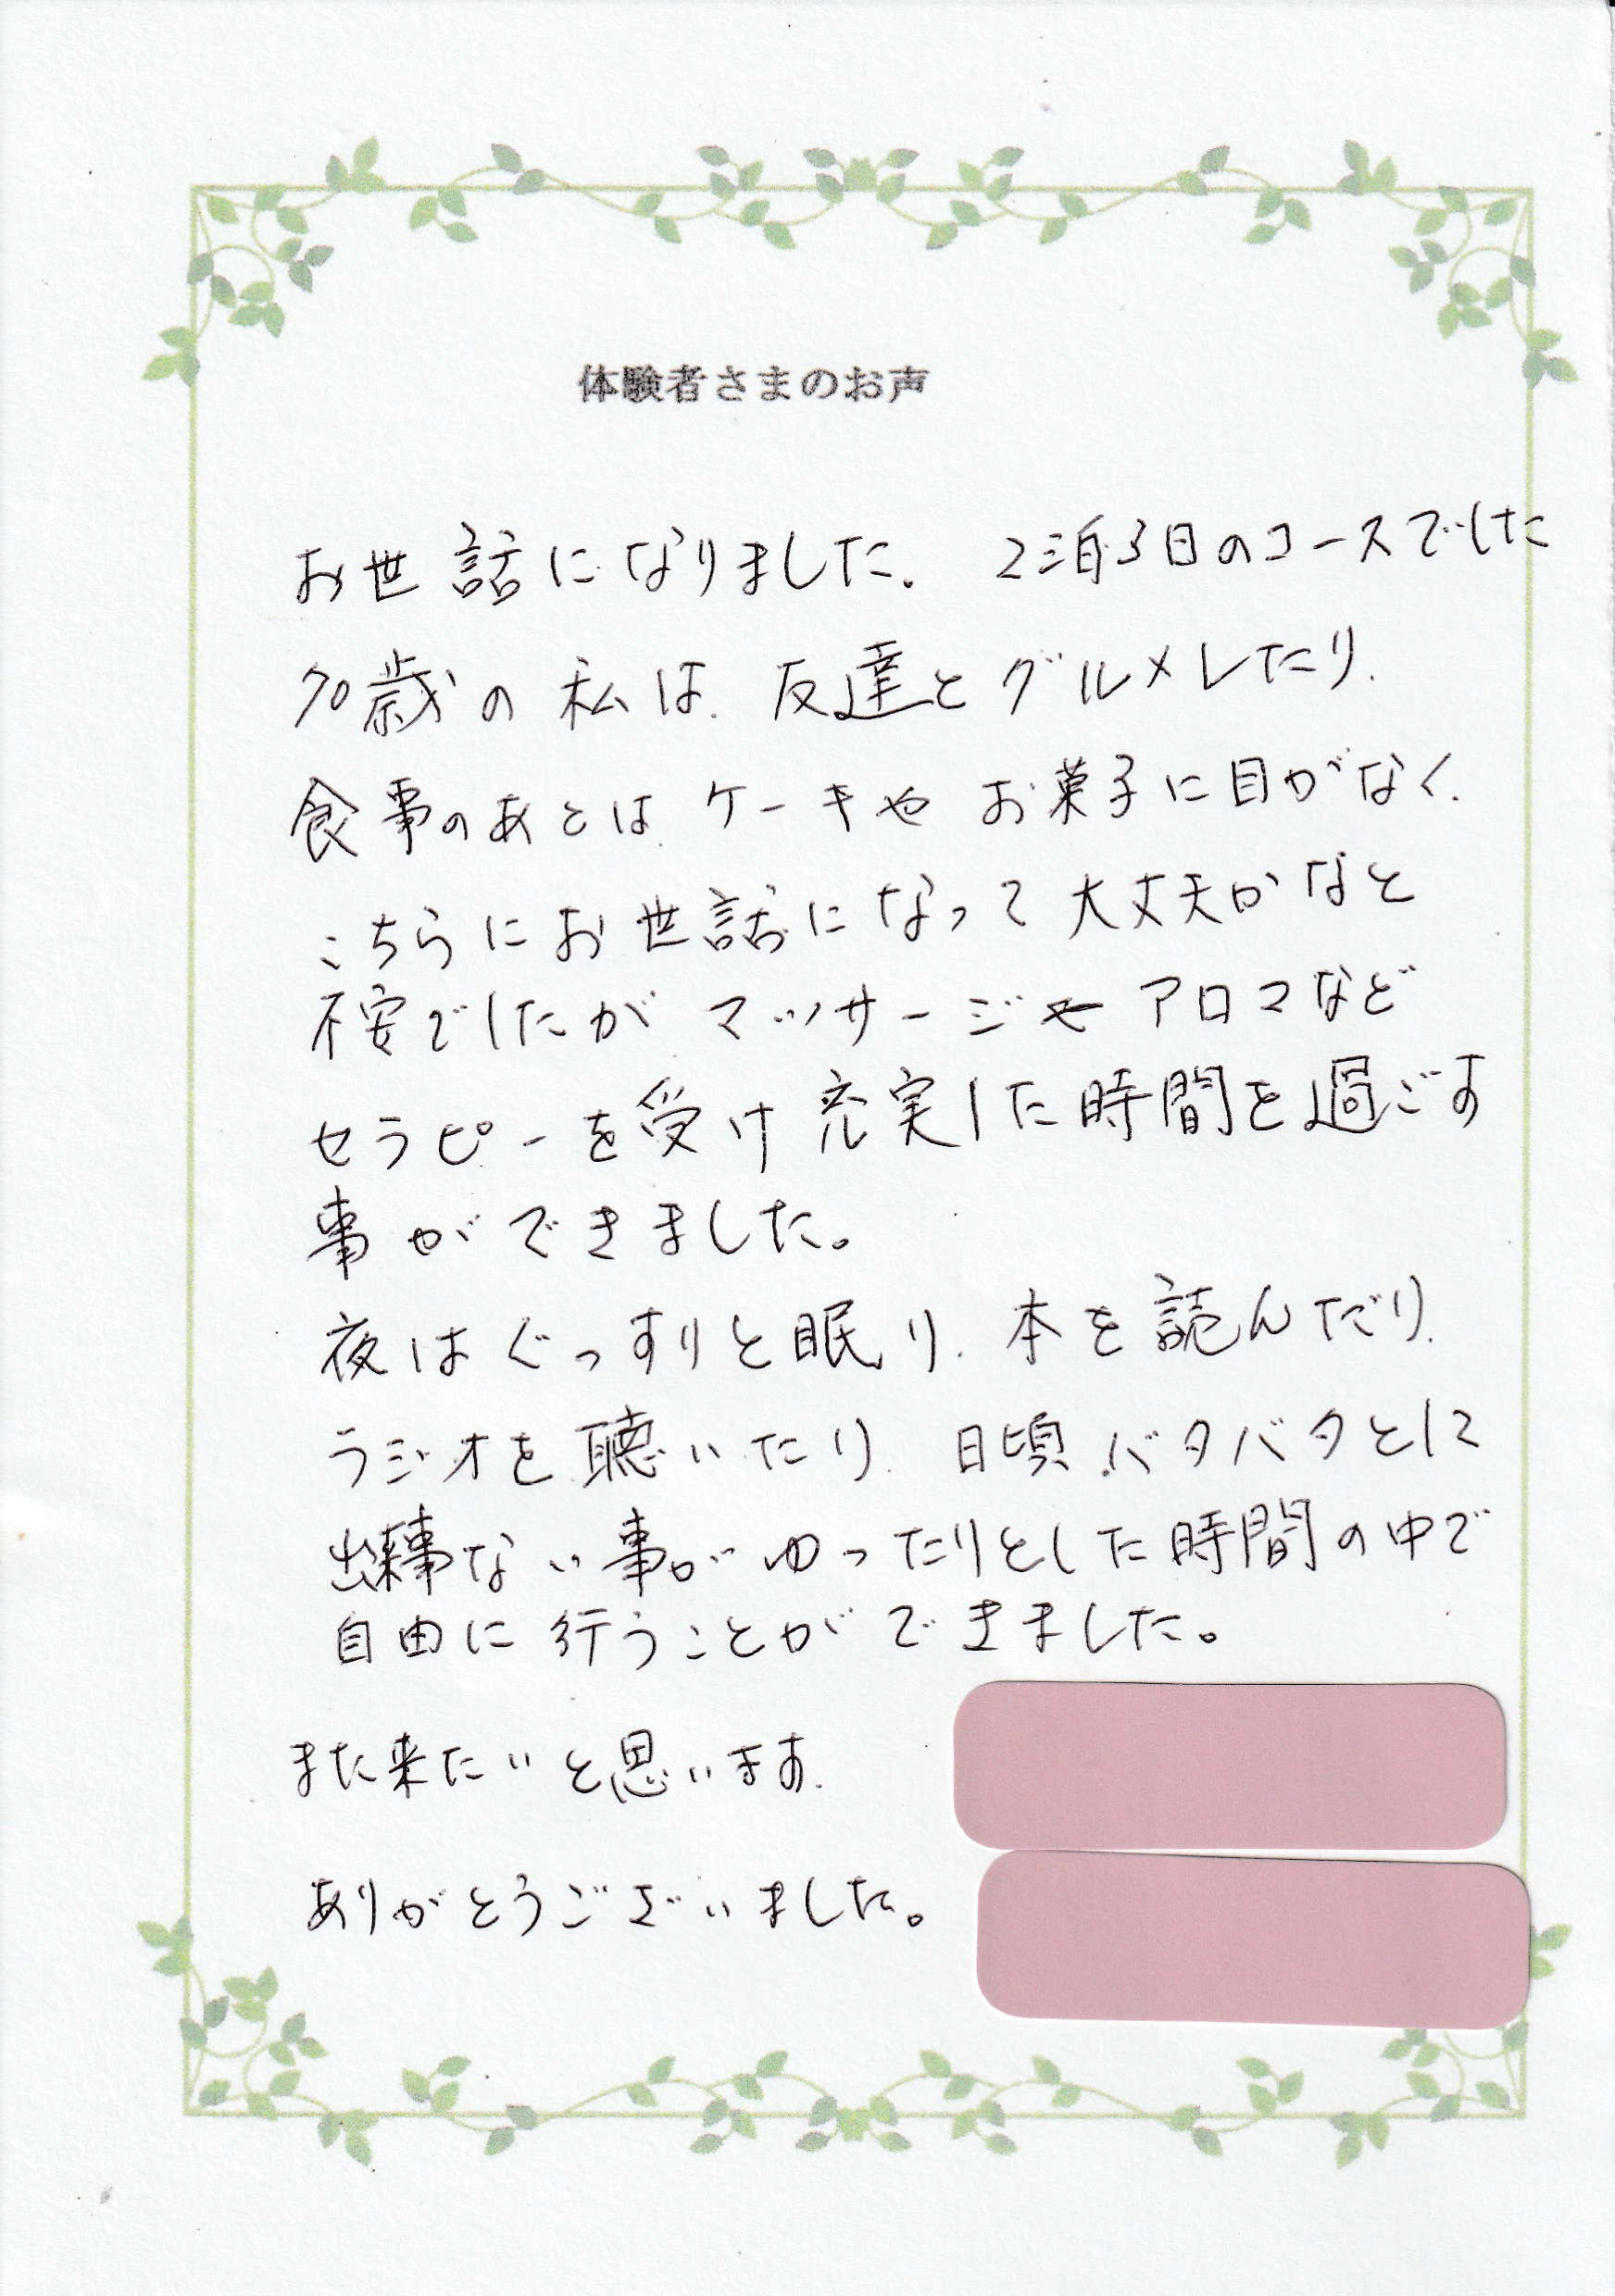 体験者さまのお声
お世話になりました。 2泊3日のコースでした
70歳の私は、友達とグルメしたり、
食事のあとは、ケーキやお菓子に目がなく、
こちらにお世話になって大丈夫かなと
不安でしたが マッサージやアロマなど
セラピーを受け 充実した時間を過ごす
事ができました。
夜はぐっすりと眠り、本を読んだり、
ラジオを聴いたり、日頃バタバタとして
出来ない事がゆったりとした時間の中で
自由に行うことができました。
また来たいと思います。
ありがとうございました。